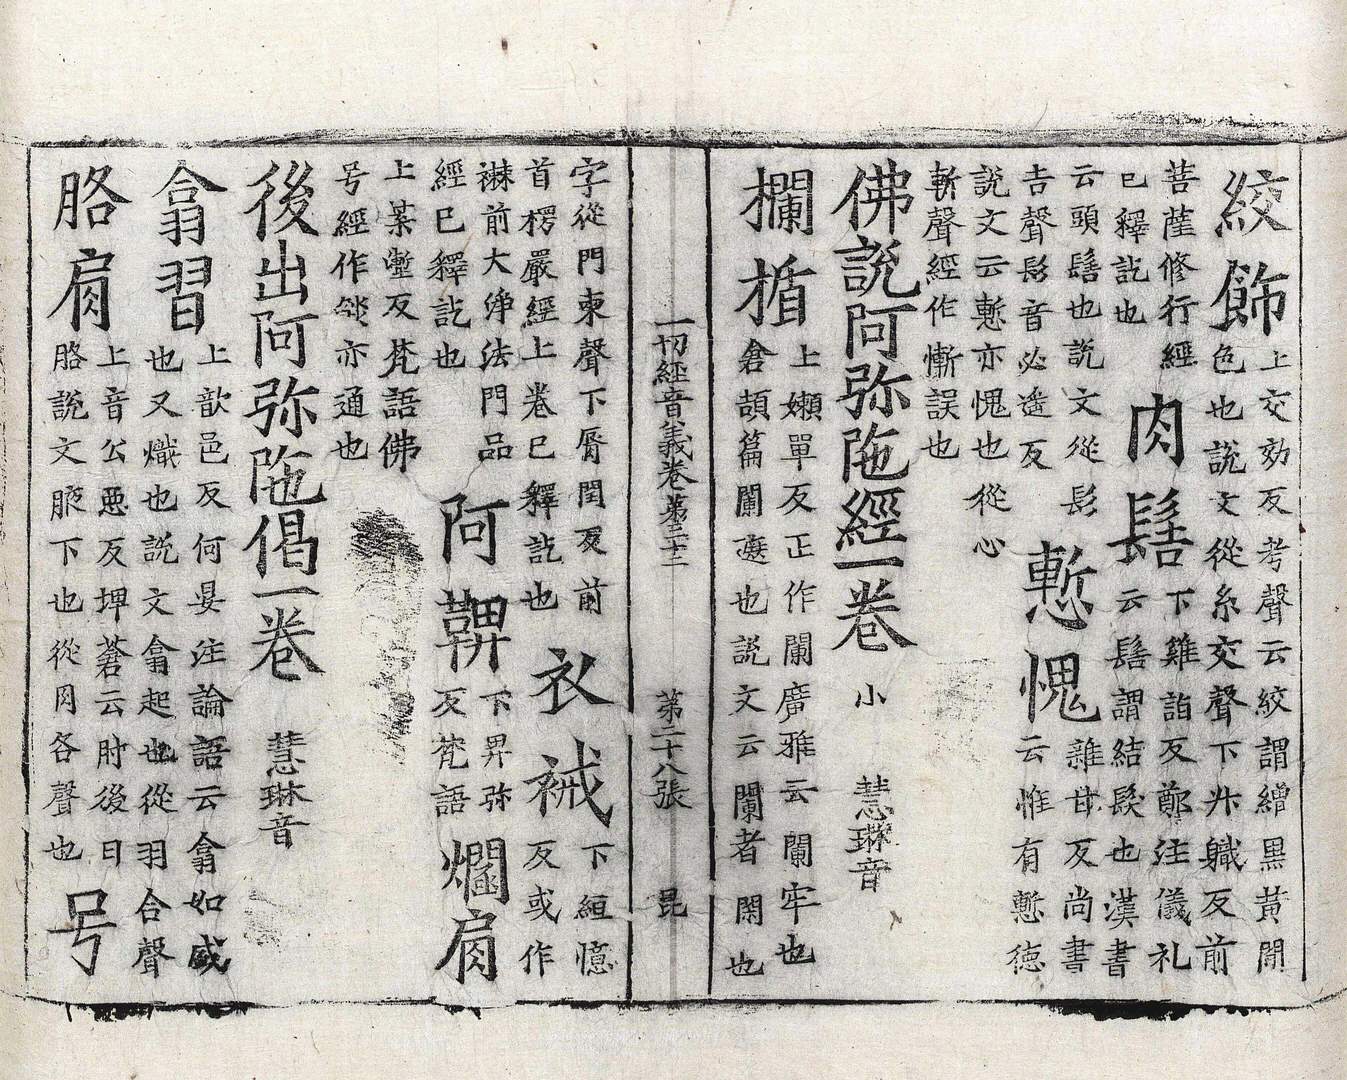 絞飾
上交効反考聲云絞謂繒黒黄閒
色也說文從糸交聲下升軄反前
菩薩修行經
已釋訖也
肉髻
下雞詣反鄭注儀礼
云髻謂結髮也漢書
云頭髻也說文從髟
吉聲髟音必遙反
慙愧
雜甘反尚書
云惟有慙德
說文云慙亦愧也從心
斬聲經作慚誤也
佛說阿弥陁經一卷 小 慧琳音
欄楯
上嬾單反正作闌廣雅云闌牢也
倉頡篇闌遮也說文云闌者閑也
一切經音義卷第三十二 第二十八張 昆
字從門柬聲下脣閏反前
首楞嚴經上卷已釋訖也
衣裓
下絙憶
反或作
襋前大淨法門品
經已釋訖也
阿鞞
下畀弥
反梵語
爓肩
上葉壍反梵語佛
号經作燄亦通也
後出阿弥陁偈一卷 慧琳音
翕習
上歆邑反何晏注論語云翕如盛
也又熾也說文翕起也從羽合聲
胳肩
上音公惡反埤蒼云肘後曰
胳說文腋下也從月各聲也
号